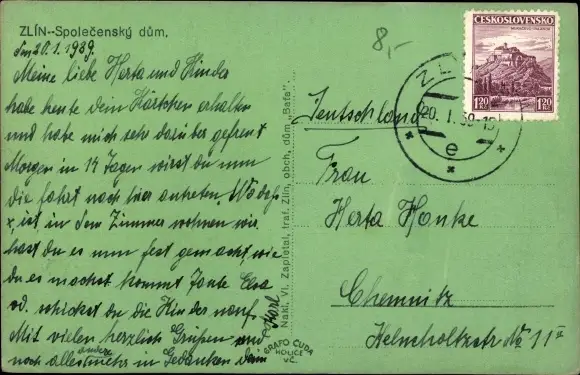 ZLÍN--Společenský dům.
Den 20.1.1939.
Meine liebe Herta und Kinder
habe heute dein Kärtchen erhalten
und habe mich sehr darüber gefreut
Morgen in 14 Tagen wirst du nun
die fahrt nach hier antreten.
ist in dem Zimmer wohnen wir
hast du es nun fest gemacht, wie
du es machst kommt Tante Elsa
od. schickst du die Kinder nauf.
Mit vielen herzlich Grüßen und
noch alles andere mehr in Gedanken dein
Karl
Nakl. Vl. Zapletal, traf. Zlín, obch. dům „Baťa”.
GRAFO ČUDA
HOLICE
V.Č.
8,-
ČESKOSLOVENSKO
1.20 1.20
ZLÍN
20. I. 39-15
e
Deutschland
Frau
Herta Hanke
Chemnitz
Helmholtzstr. No 11 II